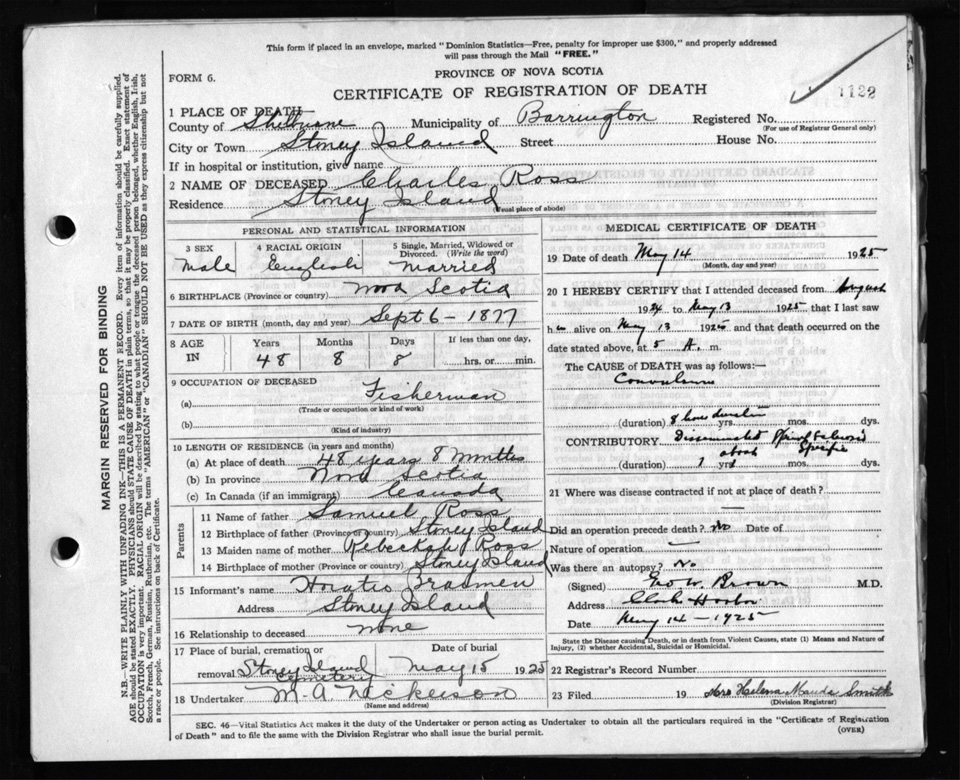 This form if placed in an envelope, marked "Dominion Statistics—Free, penalty for improper use $300," and properly addressed
will pass through the Mail "FREE."
FORM 6.
PROVINCE OF NOVA SCOTIA
CERTIFICATE OF REGISTRATION OF DEATH
1122
1 PLACE OF DEATH
County of Municipality of Barrington Registered No.
(For use of Registrar General only)
City or Town Stoney Island Street House No.
If in hospital or institution, give name
2 NAME OF DECEASED Charles Ross
Residence Stoney Island
(Usual place of abode)
PERSONAL AND STATISTICAL INFORMATION
3 SEX 4 RACIAL ORIGIN 5 Single, Married, Widowed or
Divorced. (Write the word)
Male English Married
6 BIRTHPLACE (Province or country) Nova Scotia
7 DATE OF BIRTH (month, day and year) Sept 6 - 1877
8 AGE IN Years Months Days If less than one day,
48 8 8 hrs. or min.
9 OCCUPATION OF DECEASED
(a) Fisherman
(Trade or occupation or kind of work)
(b)
(Kind of industry)
10 LENGTH OF RESIDENCE (in years and months)
(a) At place of death 48 years 8 months
(b) In province Nova Scotia
(c) In Canada (if an immigrant) Canada
Parents
11 Name of father Samuel Ross
12 Birthplace of father (Province or country) Stoney Island
13 Maiden name of mother Rebeckah Ross
14 Birthplace of mother (Province or country) Stoney Island
15 Informant's name Horatio Brannen
Address Stoney Island
16 Relationship to deceased none
17 Place of burial, cremation or Date of burial
removal Stoney Island Cemetery May 15 1925
18 Undertaker M. A. Nickerson
(Name and address)
MEDICAL CERTIFICATE OF DEATH
19 Date of death May 14 1925
(Month, day and year)
20 I HEREBY CERTIFY that I attended deceased from August
1924 to May 13 1925 that I last saw
him alive on May 13 1925 and that death occurred on the
date stated above, at 5 A. m.
The CAUSE OF DEATH was as follows:—
Convulsions
(duration) 8 hours duration yrs. mos. dys.
CONTRIBUTORY Disseminated
Specific
(duration) about 1 yrs mos. dys.
21 Where was disease contracted if not at place of death?
Did an operation precede death? No Date of
Nature of operation —
Was there an autopsy? No
(Signed) Geo W. Brown M.D.
Address Clark Harbor
Date May 14 - 1925
State the Disease causing Death, or in death from Violent Causes, state (1) Means and Nature of
Injury, (2) whether Accidental, Suicidal or Homicidal.
22 Registrar's Record Number
23 Filed 19 Mrs Helena Maude Smith
(Division Registrar)
SEC. 46—Vital Statistics Act makes it the duty of the Undertaker or person acting as Undertaker to obtain all the particulars required in the "Certificate of Registration
of Death" and to file the same with the Division Registrar who shall issue the burial permit.
(OVER)
MARGIN RESERVED FOR BINDING
N.B.—WRITE PLAINLY WITH UNFADING INK—THIS IS A PERMANENT RECORD. Every item of information should be carefully supplied.
AGE should be stated EXACTLY. PHYSICIANS should STATE CAUSE OF DEATH in plain terms, so that it may be properly classified. Exact statement of
OCCUPATION is very important. RACIAL ORIGIN will be described by stating to what people or tongue the deceased person belonged, whether English, Irish,
Scotch, French, German, Russian, Ruthenian, etc. The terms "AMERICAN" or "CANADIAN" SHOULD NOT BE USED as they express citizenship but not
a race or people. See instructions on back of Certificate.